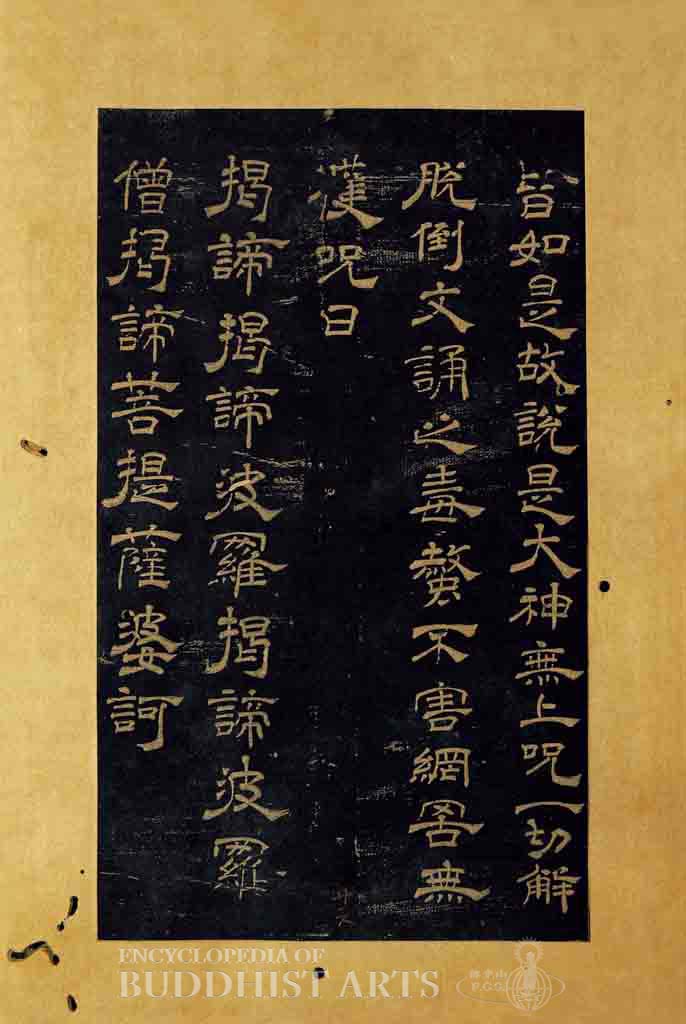 皆如是故說是大神無上呪一切解
脫倒文誦之毒螫不害網罟無
獲呪曰
揭諦揭諦波羅揭諦波羅
僧揭諦菩提薩婆訶
ENCYCLOPEDIA OF
BUDDHIST ARTS
佛光山
F.G.S.